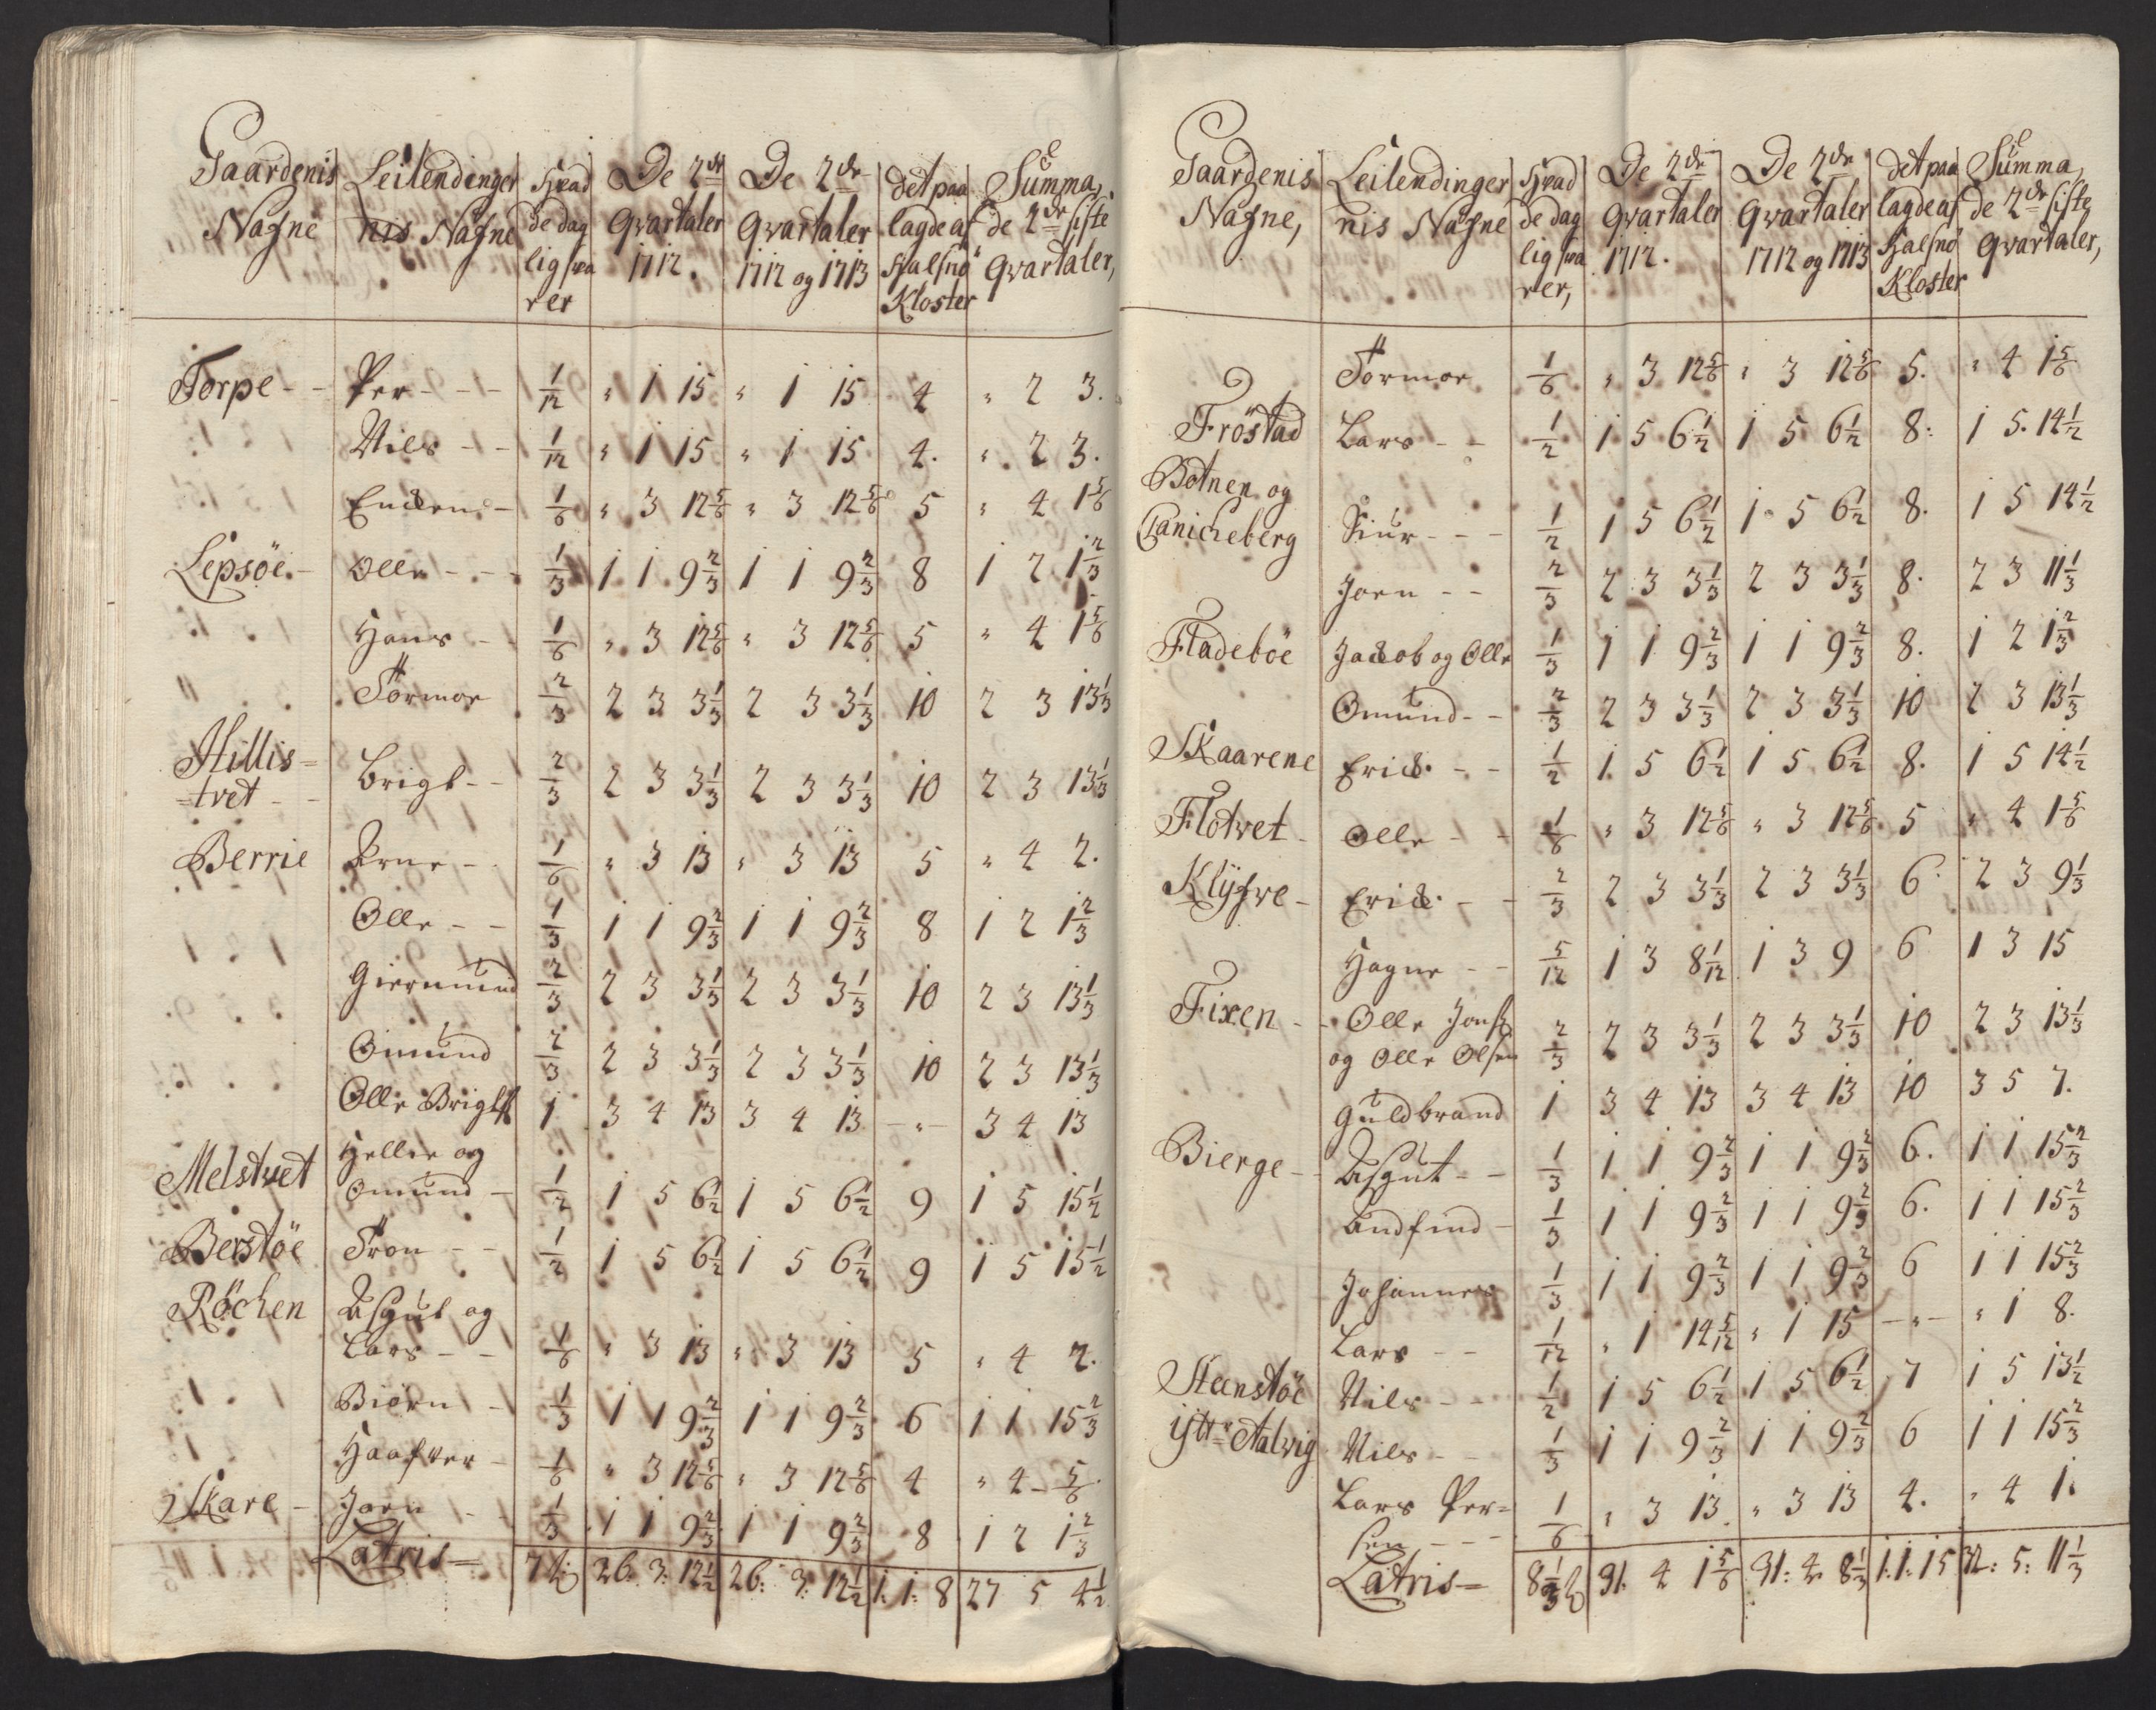 Gaardenis Nafne | Leilendinger nis Nafne | Hvad de dag lig sva rer | De 2de Qvartaler 1712. | De 2de Qvartaler 1712 og 1713 | det paa lagde af Halsnö Kloster | Summa, de 2de siste Qvartaler,
Torpe - - Per - - - 1/12 " 1 15 " 1 15 4 " 2 3.
Nils - - 1/12 " 1 15 " 1 15 4. " 2 3.
Enden - 1/6 " 3 12 5/6 " 3 12 5/6 5 " 4 1 5/6
Lepsöe - Olle - - - 1/3 1 1 9 2/3 1 1 9 2/3 8 1 2 1 2/3
Hans - 1/6 " 3 12 5/6 " 3 12 5/6 5 " 4 1 5/6
Tormoe 2/3 2 3 3 1/3 2 3 3 1/3 10 2 3 13 1/3
Hillis=
=tvet - - Brigt - - 2/3 2 3 3 1/3 2 3 3 1/3 10 2 3 13 1/3
Berrie Arne - 1/6 " 3 13 " 3 13 5 " 4 2.
Olle - - 1/3 1 1 9 2/3 1 1 9 2/3 8 1 2 1 2/3
Giermund 2/3 2 3 3 1/3 2 3 3 1/3 10 2 3 13 1/3
Omund 2/3 2 3 3 1/3 2 3 3 1/3 10 2 3 13 1/3
Olle Brigts 1 3 4 13 3 4 13 - " - 3 4 13
Melstvet Hellie og
Omund - 1/2 1 5 6 1/2 1 5 6 1/2 9 1 5 15 1/2
Berstöe Tron - - 1/2 1 5 6 1/2 1 5 6 1/2 9 1 5 15 1/2
Röchen Asgut og
Lars - - 1/6 " 3 13 " 3 13 5 " 4 2.
Biörn - 1/3 1 1 9 2/3 1 1 9 2/3 6 1 1 15 2/3
Haafver - 1/6 " 3 12 5/6 " 3 12 5/6 4 " 4 - 5/6
Skare - Joen - - 1/3 1 1 9 2/3 1 1 9 2/3 8 1 2 1 2/3
Latris = 26: 3: 12 1/2 26: 3: 12 1/2 1: 1: 8 27 5 4 1/2
Gaardenis Nafne, | Leilendinger nis Nafne | Hvad de dag lig sva rer, | De 2de Qvartaler 1712. | De 2de Qvartaler 1712 og 1713 | det paa lagde af Halsnö Kloster | Summa, de 2de siste Qvartaler,
Tormoe 1/6 " 3 12 5/6 " 3 12 5/6 5. " 4 1 5/6
Fröstad Lars - - 1/2 1 5 6 1/2 1 5 6 1/2 8. 1 5. 14 1/2
Botnen og
Canicheberg Siur - - - 1/2 1 5 6 1/2 1 5 6 1/2 8. 1 5 14 1/2
Joen - - 2/3 2 3 3 1/3 2 3 3 1/3 8. 2 3 11 1/3
Fladeböe Jacob og Olle 1/3 1 1 9 2/3 1 1 9 2/3 8. 1 2 1 2/3
Omund - - 2/3 2 3 3 1/3 2 3 3 1/3 10 2 3 13 1/3
Skaarene Erich - - 1/2 1 5 6 1/2 1 5 6 1/2 8. 1 5 14 1/2
Flotvet - Olle - - 1/6 " 3 12 5/6 " 3 12 5/6 5 " 4 1 5/6
Klÿfve - Erich - - 2/3 2 3 3 1/3 2 3 3 1/3 6 2 3 9 1/3
Hagne - - 5/12 1 3 8 1/12 1 3 9 6 1 3 15
Fixen - - Olle Jons:
og Olle Olsen 2/3 2 3 3 1/3 2 3 3 1/3 10 2 3 13 1/3
Guldbrand 1 3 4 13 3 4 13 10 3 5 7.
Bierge - - Asgut - - 1/3 1 1 9 2/3 1 1 9 2/3 6. 1 1 15 2/3
Andfind - 1/3 1 1 9 2/3 1 1 9 2/3 6. 1 1 15 2/3
Johannes 1/3 1 1 9 2/3 1 1 9 2/3 6 1 1 15 2/3
Lars - - 1/12 " 1 14 5/12 " 1 15 - " - " 1 8.
Steenstöe Nils - - 1/2 1 5 6 1/2 1 5 6 1/2 7 1 5 13 1/2
ÿttr Aalvig Nils - - 1/3 1 1 9 2/3 1 1 9 2/3 6 1 1 15 2/3
Lars Per=
sen - - - 1/6 " 3 13 " 3 13 4. " 4 1.
Latris = 8 1/3 31. 4 1 5/6 31: 4 8 1/3 1: 1: 15 32: 5: 11 1/3